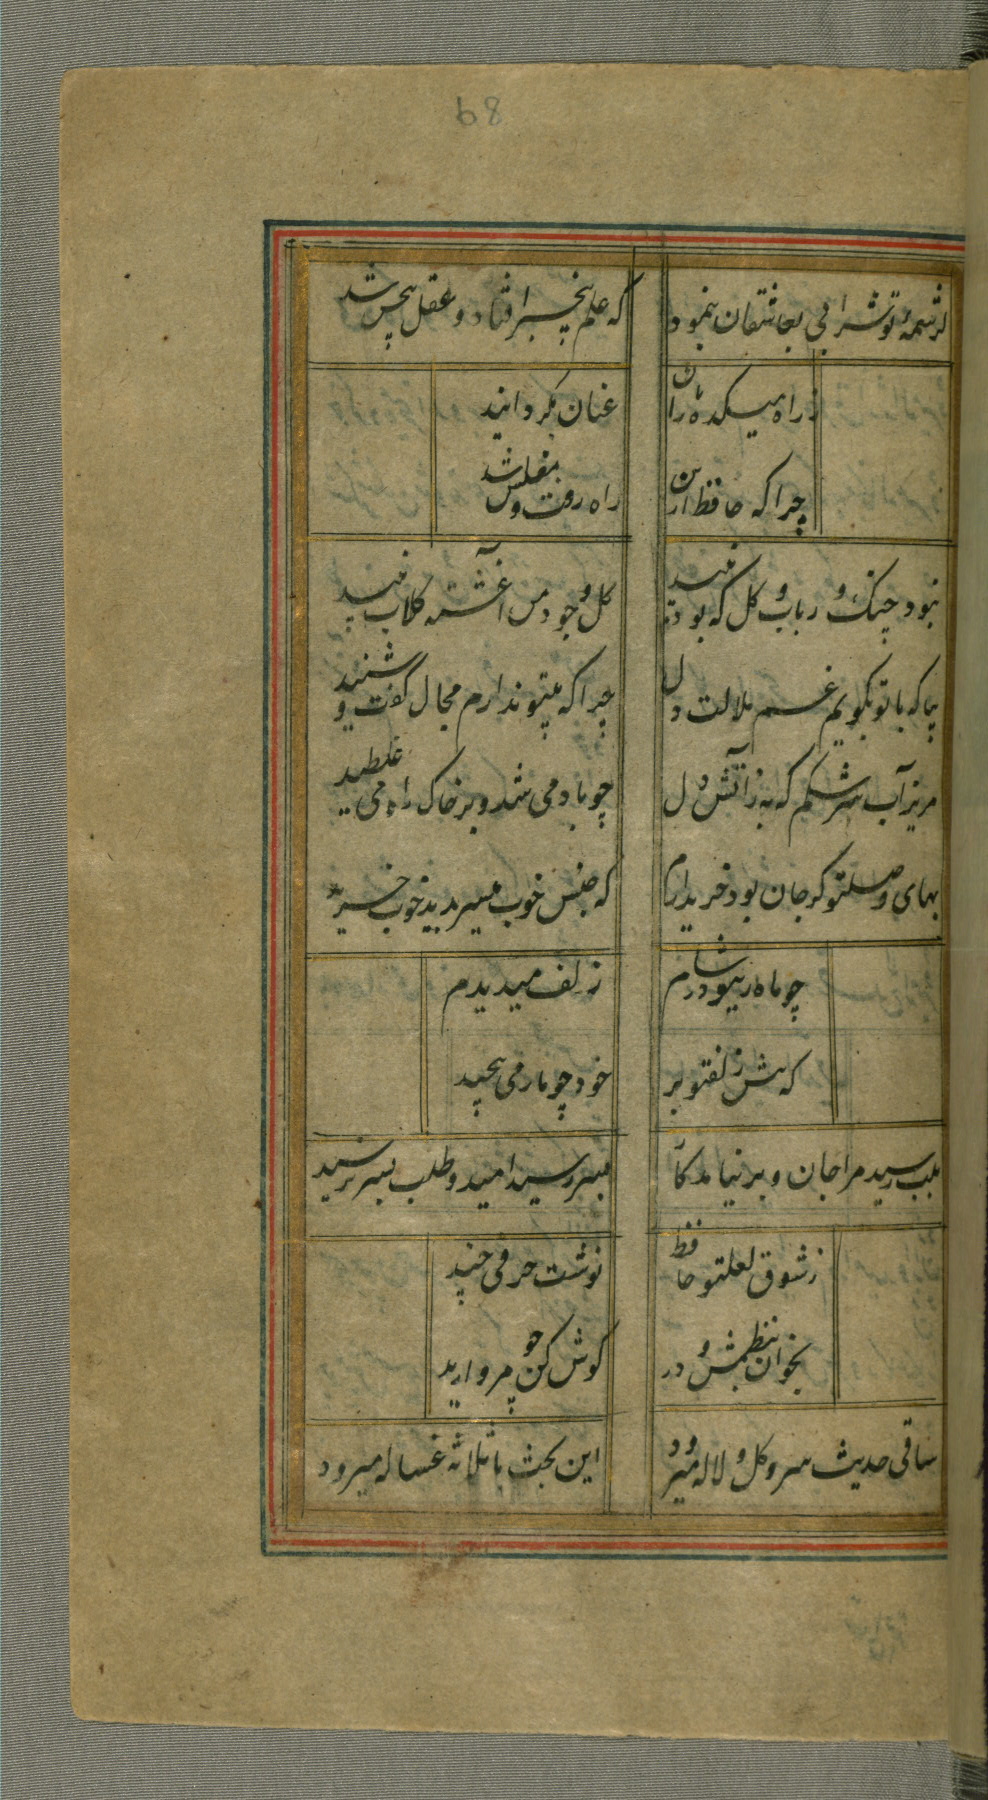 68
کرشمهٔ تو شرابی بعاشقان بنمود
که علم بیخبر افتاد و عقل بیحس شد
ز راه میکده یاران
عنان بگردانید
چرا که حافظ ازین
راه رفت و مفلس شد
نبود چنک و رباب و کل که بود نبید
کل وجود من آغشته کلاب نبید
بیا که با تو بکویم غم ملالت دل
چرا که بیتو ندارم مجال کفت و شنید
مریز آب سرشکم که
چو باد می شد و بر خاک راه می غلطید
بهای وصلتو کر جان بود خریدارم
که جنس خوب
چو ماه رویتو در شام
زلف میدیدم
که
خود چو مار می پیچید
بلب رسید مرا جان و بر نیامد کام
بسر رسید امید و طلب بسر نرسید
ز شوق لعلتو حافظ
نوشت حرفی چند
بخوان بنظمش و در
کوش کن چو مروارید
ساقی حدیث سرو و کل و لاله میرود
این بحث با ثلاثه غساله میرود